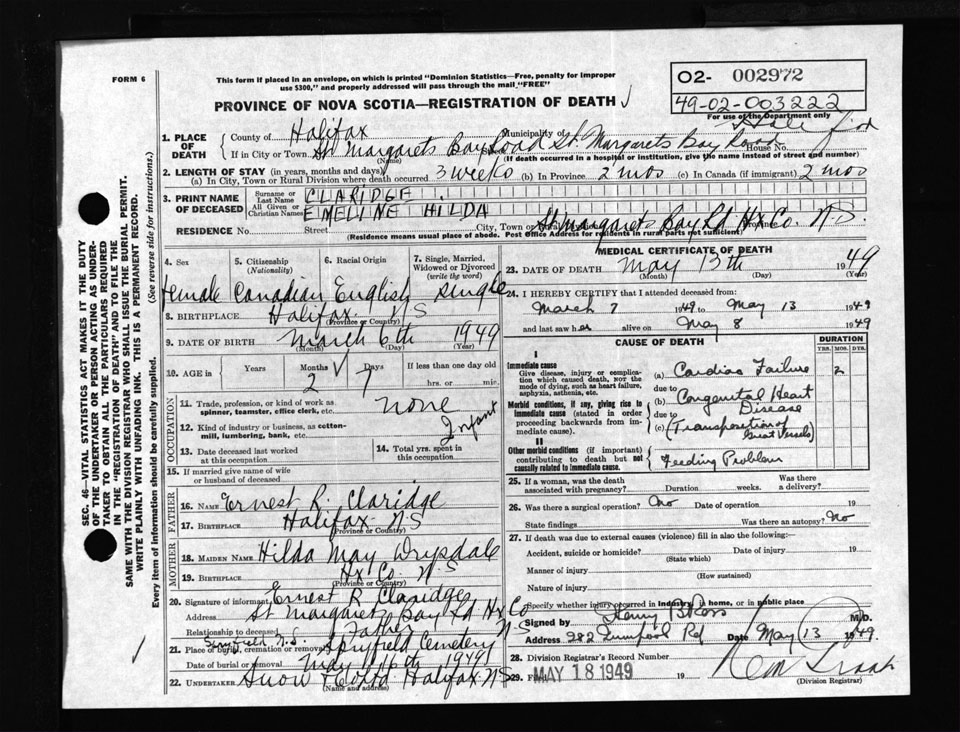 FORM 6
This form if placed in an envelope, on which is printed "Dominion Statistics—Free, penalty for improper
use $300," and properly addressed will pass through the mail "FREE"
PROVINCE OF NOVA SCOTIA—REGISTRATION OF DEATH
02- 002972
49-02-003222
For use of the Department only
1. PLACE OF DEATH
County of Halifax Municipality of Halifax
If in City or Town St. Margarets Bay Road St. Margarets Bay Road House No.
(Name) (If death occurred in a hospital or institution, give the name instead of street and number)
2. LENGTH OF STAY (in years, months and days)
(a) In City, Town or Rural Division where death occurred 3 weeks (b) In Province 2 mos (c) In Canada (if immigrant) 2 mos
3. PRINT NAME OF DECEASED
Surname or Last Name CLARIDGE
All Given or Christian Names EMELINE HILDA
RESIDENCE No. Street City, Town or St. Margarets Bay Rd. Hx Co. N.S.
(Residence means usual place of abode. Post Office Address for residents in rural parts not sufficient)
4. Sex 5. Citizenship (Nationality) 6. Racial Origin 7. Single, Married, Widowed or Divorced (write the word)
Female Canadian English single
8. BIRTHPLACE Halifax N S
(Province or Country)
9. DATE OF BIRTH March 6th 1949
(Month) (Day) (Year)
10. AGE in Years Months Days If less than one day old
2 7 hrs. or min.
OCCUPATION
11. Trade, profession, or kind of work as spinner, teamster, office clerk, etc. none
12. Kind of industry or business, as cotton-mill, lumbering, bank, etc. Infant
13. Date deceased last worked at this occupation
14. Total yrs. spent in this occupation
15. If married give name of wife or husband of deceased
FATHER
16. NAME Ernest R. Claridge
17. BIRTHPLACE Halifax N S
(Province or Country)
MOTHER
18. MAIDEN NAME Hilda May Drysdale
19. BIRTHPLACE Hx Co. N. S
(Province or Country)
20. Signature of informant Ernest R Claridge
Address St Margarets Bay Rd Hx Co N S
Relationship to deceased Father
21. Place of burial, cremation or removal Spryfield N.S. Spryfield Cemetery
Date of burial or removal May 16th 1949
22. UNDERTAKER Snow & Co Ltd. Halifax N S
(Name and address)
MEDICAL CERTIFICATE OF DEATH
23. DATE OF DEATH May 13th 1949
(Month) (Day) (Year)
24. I HEREBY CERTIFY that I attended deceased from:
March 7 1949 to May 13 1949
and last saw her alive on May 8 1949
CAUSE OF DEATH
DURATION
YRS. MOS. DYS.
I
Immediate cause
Give disease, injury or complication which caused death, not the mode of dying, such as heart failure, asphyxia, asthenia, etc.
(a) Cardiac Failure 2
due to
Morbid conditions, if any, giving rise to immediate cause (stated in order proceeding backwards from immediate cause).
(b) Congenital Heart Disease
due to
(c) (Transposition of Great Vessels)
II
Other morbid conditions (if important) contributing to death but not causally related to immediate cause.
Feeding Problem
25. If a woman, was the death associated with pregnancy? Duration weeks. Was there a delivery?
26. Was there a surgical operation? No Date of operation 19
State findings Was there an autopsy? No
27. If death was due to external causes (violence) fill in also the following:
Accident, suicide or homicide? Date of injury 19
(State which)
Manner of injury
(How sustained)
Nature of injury
Specify whether injury occurred in industry, in home, or in public place
Signed by Henry M.D.
Address 282 Rd Date May 13 1949.
28. Division Registrar's Record Number
29. Filed MAY 18 1949 19
(Division Registrar)
SEC. 46—VITAL STATISTICS ACT MAKES IT THE DUTY
OF THE UNDERTAKER OR PERSON ACTING AS UNDERTAKER TO OBTAIN ALL THE PARTICULARS REQUIRED
IN THE "REGISTRATION OF DEATH" AND TO FILE THE
SAME WITH THE DIVISION REGISTRAR WHO SHALL ISSUE THE BURIAL PERMIT.
WRITE PLAINLY WITH UNFADING INK. THIS IS A PERMANENT RECORD.
Every item of information should be carefully supplied. (See reverse side for instructions.)